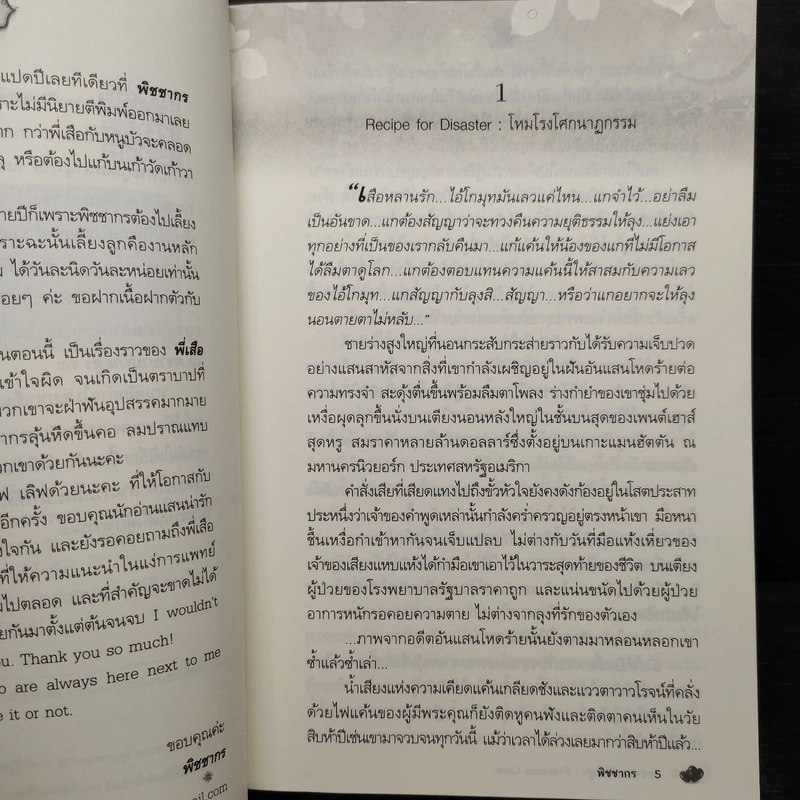 แปดปีเลยทีเดียวที่ พิชชากร
ราะไม่มีนิยายตีพิมพ์ออกมาเลย
าก กว่าพี่เสือกับหนูบัวจะคลอด
ลุ หรือต้องไปแก้บนเก้าวัดเก้าวา
ายปีก็เพราะพิชชากรต้องไปเลี้ยง
ราะฉะนั้นเลี้ยงลูกคืองานหลัก
ได้วันละนิดวันละหน่อยเท่านั้น
อยๆ ค่ะ ขอฝากเนื้อฝากตัวกับ
นตอนนี้ เป็นเรื่องราวของ พี่เสือ
เข้าใจผิด จนเกิดเป็นตราบาปที่
วกเขาจะฝ่าฟันอุปสรรคมากมาย
ากรลุ้นหืดขึ้นคอ ลมปราณแทบ
วกเขาด้วยกันนะคะ
ฟ เลิฟด้วยนะคะ ที่ให้โอกาสกับ
อีกครั้ง ขอบคุณนักอ่านแสนน่ารัก
งใจกัน และยังรอคอยถามถึงพี่เสือ
ที่ให้ความแนะนำในแง่การแพทย์
มไปตลอด และที่สำคัญจะขาดไม่ได้
ยกันมาตั้งแต่ต้นจนจบ I wouldn't
ou. Thank you so much!
o are always here next to me
e it or not.
ขอบคุณค่ะ
พิชชากร
ail.com
1
Recipe for Disaster : โหมโรงโศกนาฏกรรม
“เสือหลานรัก...ไอ้โกมุทมันเลวแค่ไหน...แกจำไว้...อย่าลืม
เป็นอันขาด...แกต้องสัญญาว่าจะทวงคืนความยุติธรรมให้ลุง...แย่งเอา
ทุกอย่างที่เป็นของเรากลับคืนมา...แก้แค้นให้น้องของแกที่ไม่มีโอกาส
ได้ลืมตาดูโลก...แกต้องตอบแทนความแค้นนี้ให้สาสมกับความเลว
ของไอ้โกมุท...แกสัญญากับลุงสิ...สัญญา...หรือว่าแกอยากจะให้ลุง
นอนตายตาไม่หลับ...”
ชายร่างสูงใหญ่ที่นอนกระสับกระส่ายราวกับได้รับความเจ็บปวด
อย่างแสนสาหัสจากสิ่งที่เขากำลังเผชิญอยู่ในฝันอันแสนโหดร้ายต่อ
ความทรงจำ สะดุ้งตื่นขึ้นพร้อมลืมตาโพลง ร่างกำยำของเขาชุ่มไปด้วย
เหงื่อผุดลุกขึ้นนั่งบนเตียงนอนหลังใหญ่ในชั้นบนสุดของเพนต์เฮาส์
สุดหรู สมราคาหลายล้านดอลลาร์ซึ่งตั้งอยู่บนเกาะแมนฮัตตัน ณ
มหานครนิวยอร์ก ประเทศสหรัฐอเมริกา
คำสั่งเสียที่เสียดแทงไปถึงขั้วหัวใจยังคงดังก้องอยู่ในโสตประสาท
ประหนึ่งว่าเจ้าของคำพูดเหล่านั้นกำลังคร่ำครวญอยู่ตรงหน้าเขา มือหนา
ชื้นเหงื่อกำเข้าหากันจนเจ็บแปลบ ไม่ต่างกับวันที่มือแห้งเหี่ยวของ
เจ้าของเสียงแหบแห้งได้กำมือเขาเอาไว้ในวาระสุดท้ายของชีวิต บนเตียง
ผู้ป่วยของโรงพยาบาลรัฐบาลราคาถูก และแน่นขนัดไปด้วยผู้ป่วย
อาการหนักรอคอยความตาย ไม่ต่างจากลุงที่รักของตัวเอง
...ภาพจากอดีตอันแสนโหดร้ายนั้นยังตามมาหลอนหลอกเขา
ซ้ำแล้วซ้ำเล่า...
น้ำเสียงแห่งความเคียดแค้นเกลียดชังและแววตาวาวโรจน์ที่คลั่ง
ด้วยไฟแค้นของผู้มีพระคุณก็ยังติดหูคนฟังและติดตาคนเห็นในวัย
สิบห้าปีเช่นเขามาจวบจนทุกวันนี้ แม้ว่าเวลาได้ล่วงเลยมากว่าสิบห้าปีแล้ว...
พิชชากร 5